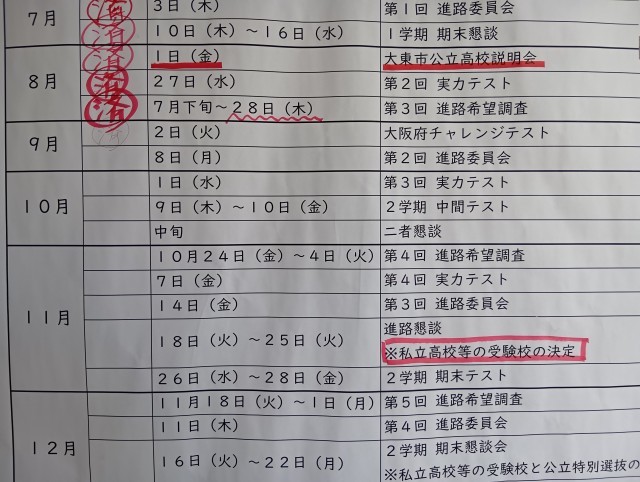 7月
済 3日（木） 第1回 進路委員会
済 10日（木）～16日（水） 1学期 期末懇談
8月
済 1日（金） 大東市公立高校説明会
済 27日（水） 第2回 実力テスト
済 7月下旬～28日（木） 第3回 進路希望調査
9月
2日（火） 大阪府チャレンジテスト
8日（月） 第2回 進路委員会
10月
1日（水） 第3回 実力テスト
9日（木）～10日（金） 2学期 中間テスト
中旬 二者懇談
11月
10月24日（金）～4日（火） 第4回 進路希望調査
7日（金） 第4回 実力テスト
14日（金） 第3回 進路委員会
18日（火）～25日（火） 進路懇談
※私立高校等の受験校の決定
26日（水）～28日（金） 2学期 期末テスト
12月
11月18日（火）～1日（月） 第5回 進路希望調査
11日（木） 第4回 進路委員会
16日（火）～22日（月） 2学期 期末懇談会
※私立高校等の受験校と公立特別選抜の